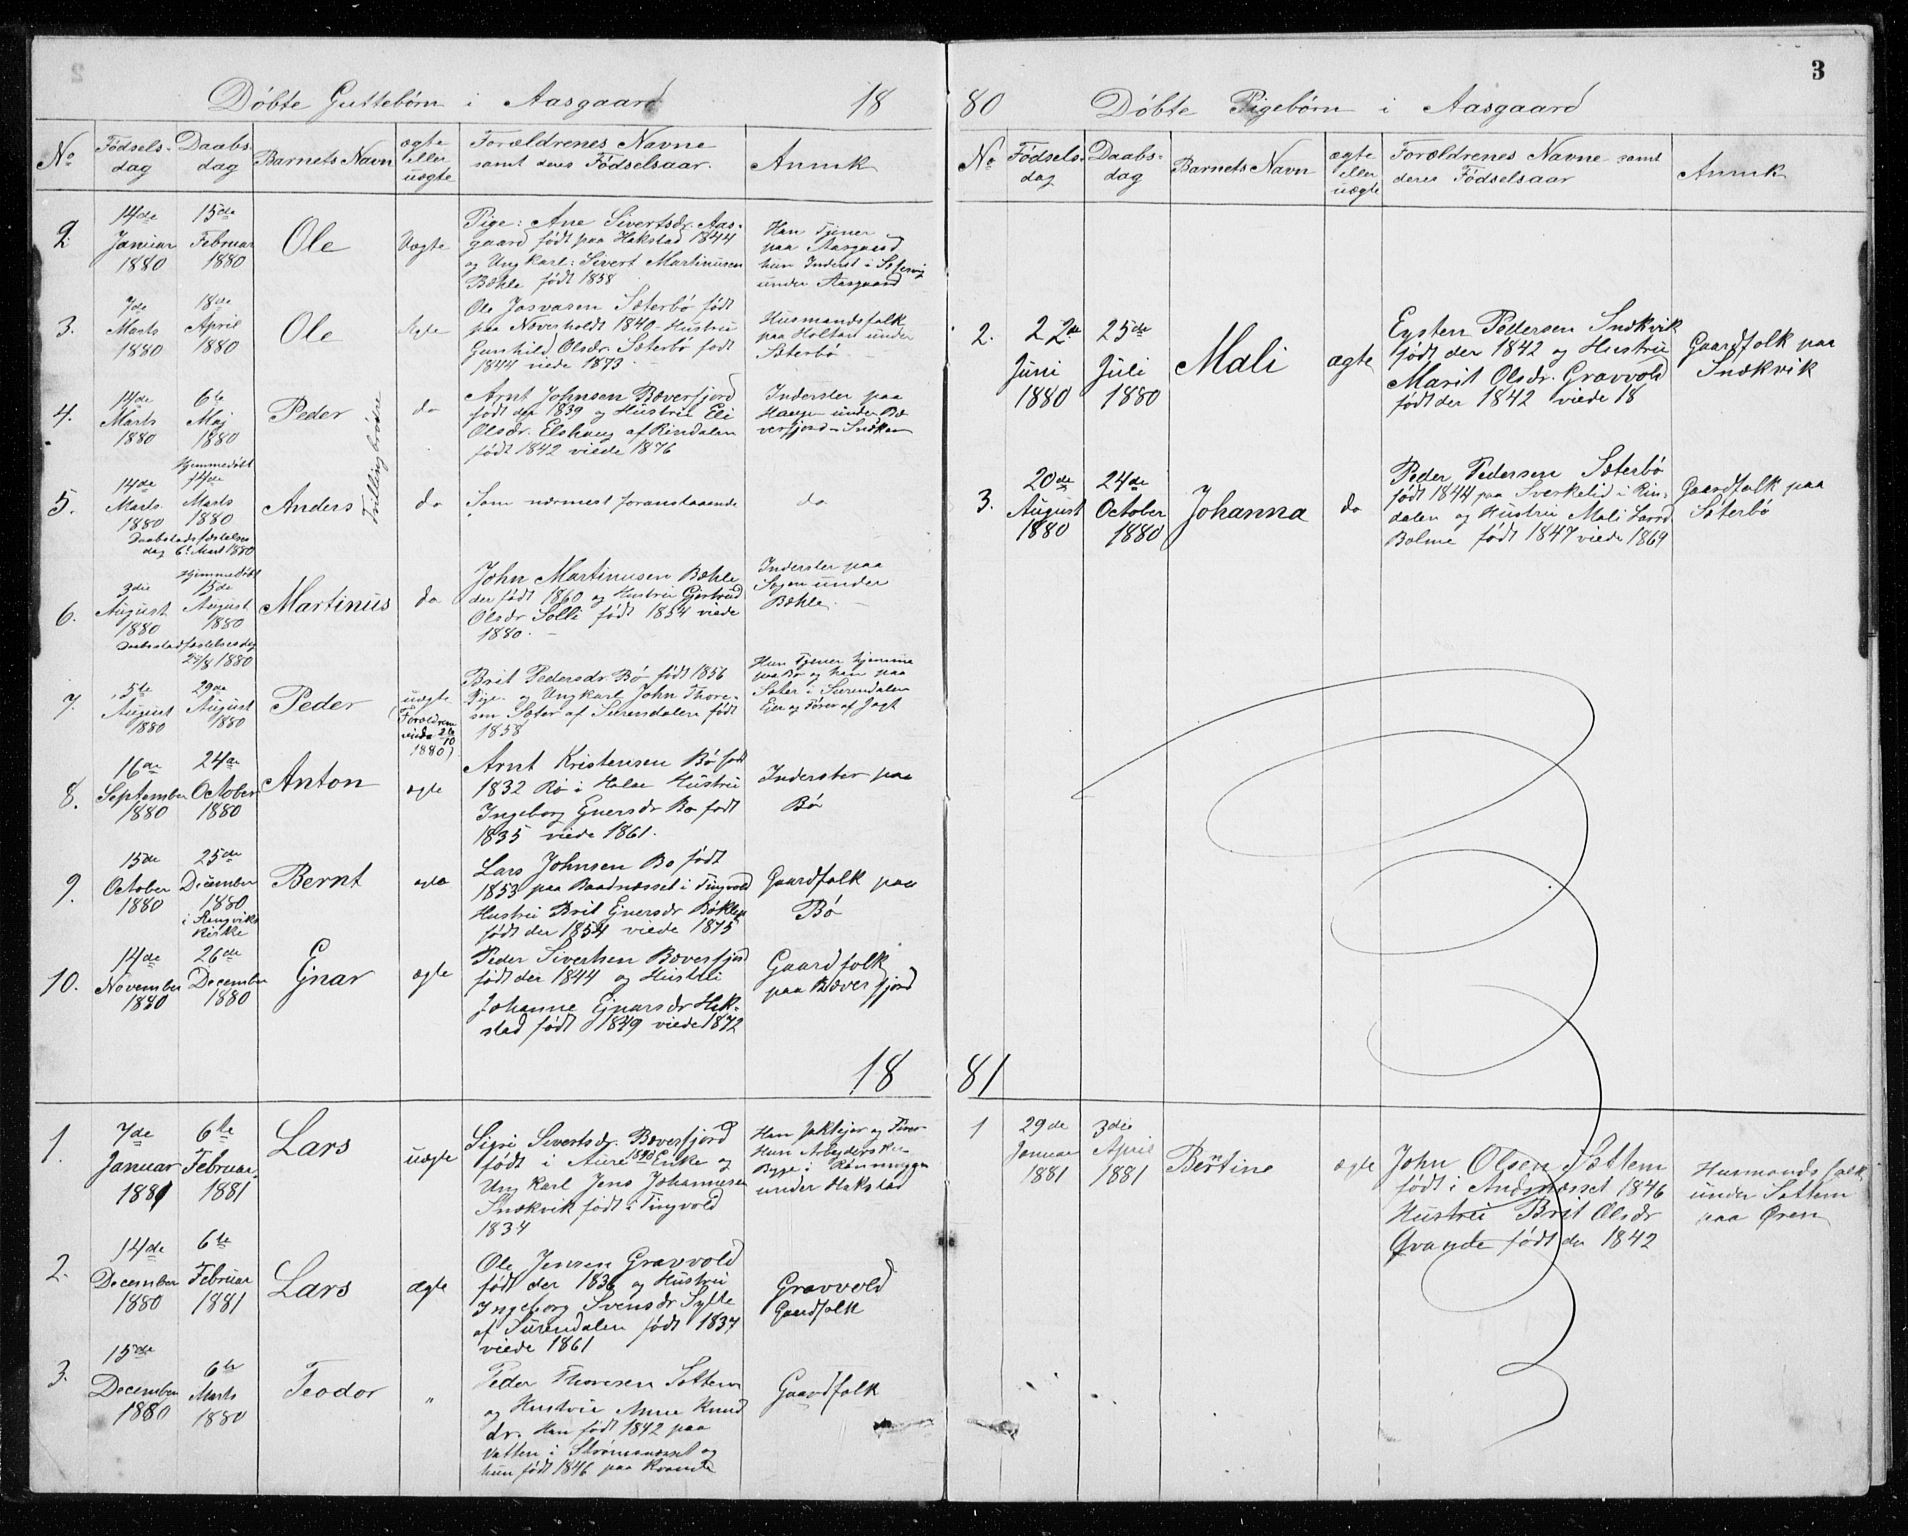 3
Døbte Guttebørn i Aasgaard 18
No
Fødsels-
dag
Daabs
dag
Barnets Navn
ægte
eller
uægte
Forældrenes Navne
samt deres Fødselsaar.
Anmk
2
14de
Januar
1880
15de
Februar
1880
Ole
Uægte
Pige: Ane Sivertsdr. Aas-
gaard født paa Hakstad 1844
og Ungkarl: Sivert Martinusen
Bæhle født 1858
Han Tjener
paa Aasgaard
hun Inderst i
under Aasgaard
3.
7de
Marts
1880
18de
April
1880
Ole
Ægte
Ole Sæterbø født
paa 1840. Hustru
Gunhild Olsdr. Sæterbø født
1844 viede 1873
Husmandsfolk
paa Holtan under
Sæterbø
4.
14de
Marts
1880
6te
Maj
1880
Peder
Trillingbrødre
do
Arnt Johnsen Bæverfjord
født der 1839 og Hustru Eli
Olsdr. Elshaug af Rindalen
født 1842 viede 1876
Inderster paa
Haugen under Bæ
verfjord
5.
14de
Marts
1880
Hjemmedøbt
14de
Marts
1880
Daabstadfæstelses
dag
Anders
do
Som nærmest foranstaaende
do
6.
3die
August
1880
Hjemmedøbt
15de
August
1880
Daabsstadfæstelsesdag
29/8 1880
Martinus
do
John Martinusen Bæhle
der født 1860 og Hustru Gjertrud
Olsdr Solli født 1854 viede
1880.
Inderster paa
under
Bæhle.
7.
5te
August
1880
29de
August
1880
Peder
uægte
(Forældrene
viede 26/10
1880)
Brit Pedersdr Bø født 1856
Pige og Ungkarl John Thore-
sen Sæter af Surendalen født
1858
Hun Tjener hjemme
paa Bø og han paa
Sæter i Surendalen
Ejer og Fører af Jagt
8.
16de
September
1880
24de
October
1880
Anton
ægte
Arnt Kristensen Bø født
1832 Bø i Halse Hustru
Ingeborg Ejnersdr Bø født
1835 viede 1861.
Inderster paa
Bø
9.
15de
October
1880
25de
December
1880
i Stangvik
Kirke
Bernt
ægte
Lars Johnsen Bø født
1853 paa Baadnæsset i Tingvold
Hustru Brit Ejnersdr
født der 1854 viede 1875
Gaardfolk paa
Bø
10.
14de
November
1880
26de
December
1880
Ejnar
ægte
Peder Sivertsen Bæverfjord
født der 1844 og Hustru
Johanne Ejnarsdr Hak-
stad født 1849 viede 1872
Gaardfolk
paa Bæverfjord
18
1.
7de
Januar
1881
6te
Februar
1881
Lars
uægte
Sigri Sivertsdr. Bæverfjord
født i Aure 1840 Enke og
Ungkarl Jens Johannesen
Snekvik født i Tingvold
1834
Han Jægtejer og Fører
Hun Arbejderske
Bygs i
under Hakstad
2.
14de
December
1880
6te
Februar
1881
Lars
Ægte
Ole Jensen Gravvold
født der 1836 og Hustru
Ingeborg Svensdr Sylte
af Surendalen født 1837
viede 1861
Gravvold
Gaardfolk
3.
15de
December
1880
6te
Marts
1880
Teodor
"
Peder Thoresen Settem
og Hustru Anne Knud
dr. Han født 1842 paa
Vatten i Strømsnæsset og
hun født 1846 paa Kvande
80 Døbte Pigebørn i Aasgaard
No
Fødsels-
dag
Daabs-
dag
Barnets Navn
ægte
eller
uægte
Forældrenes Navne samt
deres Fødselsaar
Anmk
2.
22de
Juni
1880
25de
Juli
1880
Mali
ægte
Eysten Pedersen Snekvik
født der 1842 og Hustru
Marit Olsdr. Gravvold
født der 1842 viede 18
Gaardfolk paa
Snekvik
3.
20de
August
1880
24de
October
1880
Johanna
do
Peder Pedersen Sæterbø
født 1844 paa Sverkelid i Rin-
dalen og Hustru Mali Larsd
Bolme født 1847 viede 1869
Gaardfolk paa
Sæterbø
81
1
29de
Januar
1881
3die
April
1881
Berntine
ægte
John Olsen Settem
født i Andsnæsset 1846
Hustru Brit Olsdr
Qvande født der 1842
Husmandsfolk
under Settem
paa Øren